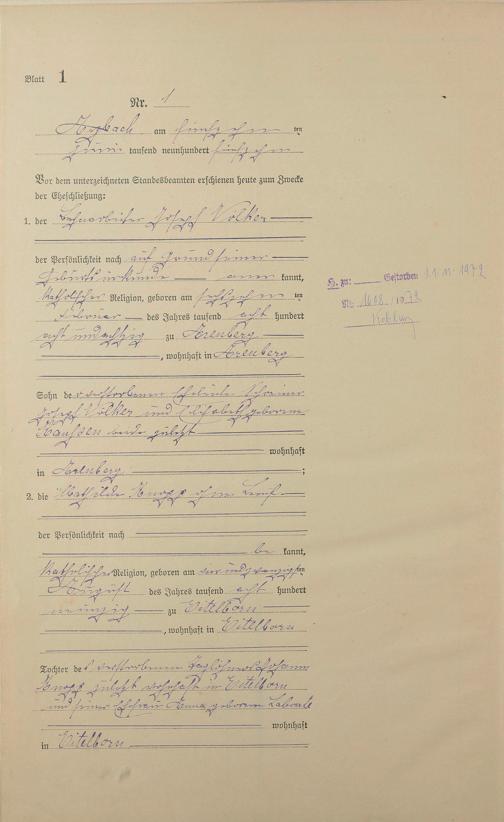 Blatt 1
Nr. 1
Arzbach am fünfzehnten
Juni tausend neunhundert fünfzehn
Vor dem unterzeichneten Standesbeamten erschienen heute zum Zwecke
der Eheschließung:
1. der Bahnarbeiter Joseph Volker
der Persönlichkeit nach auf Grund seiner
Geburtsurkunde anerkannt,
katholischer Religion, geboren am sechszehnten
Februar des Jahres tausend acht hundert
acht und achtzig zu Arenberg
, wohnhaft in Arenberg
Sohn der verstorbenen Eheleute Schreiner
Joseph Volker und Elisabeth geborenen
beide zuletzt
wohnhaft
in Arenberg ;
2. die Mathilde Knopp ohne Beruf
der Persönlichkeit nach
be kannt,
katholischer Religion, geboren am vier und zwanzigsten
August des Jahres tausend acht hundert
neunzig zu Eitelborn
, wohnhaft in Eitelborn
Tochter des verstorbenen Taglöhners Johann
Knopp zuletzt wohnhaft in Eitelborn
und seiner Ehefrau Anna geborenen
wohnhaft
in Eitelborn
H. zu: Gestorben 11.11.1972
Nr. 1608 1972
Koblenz